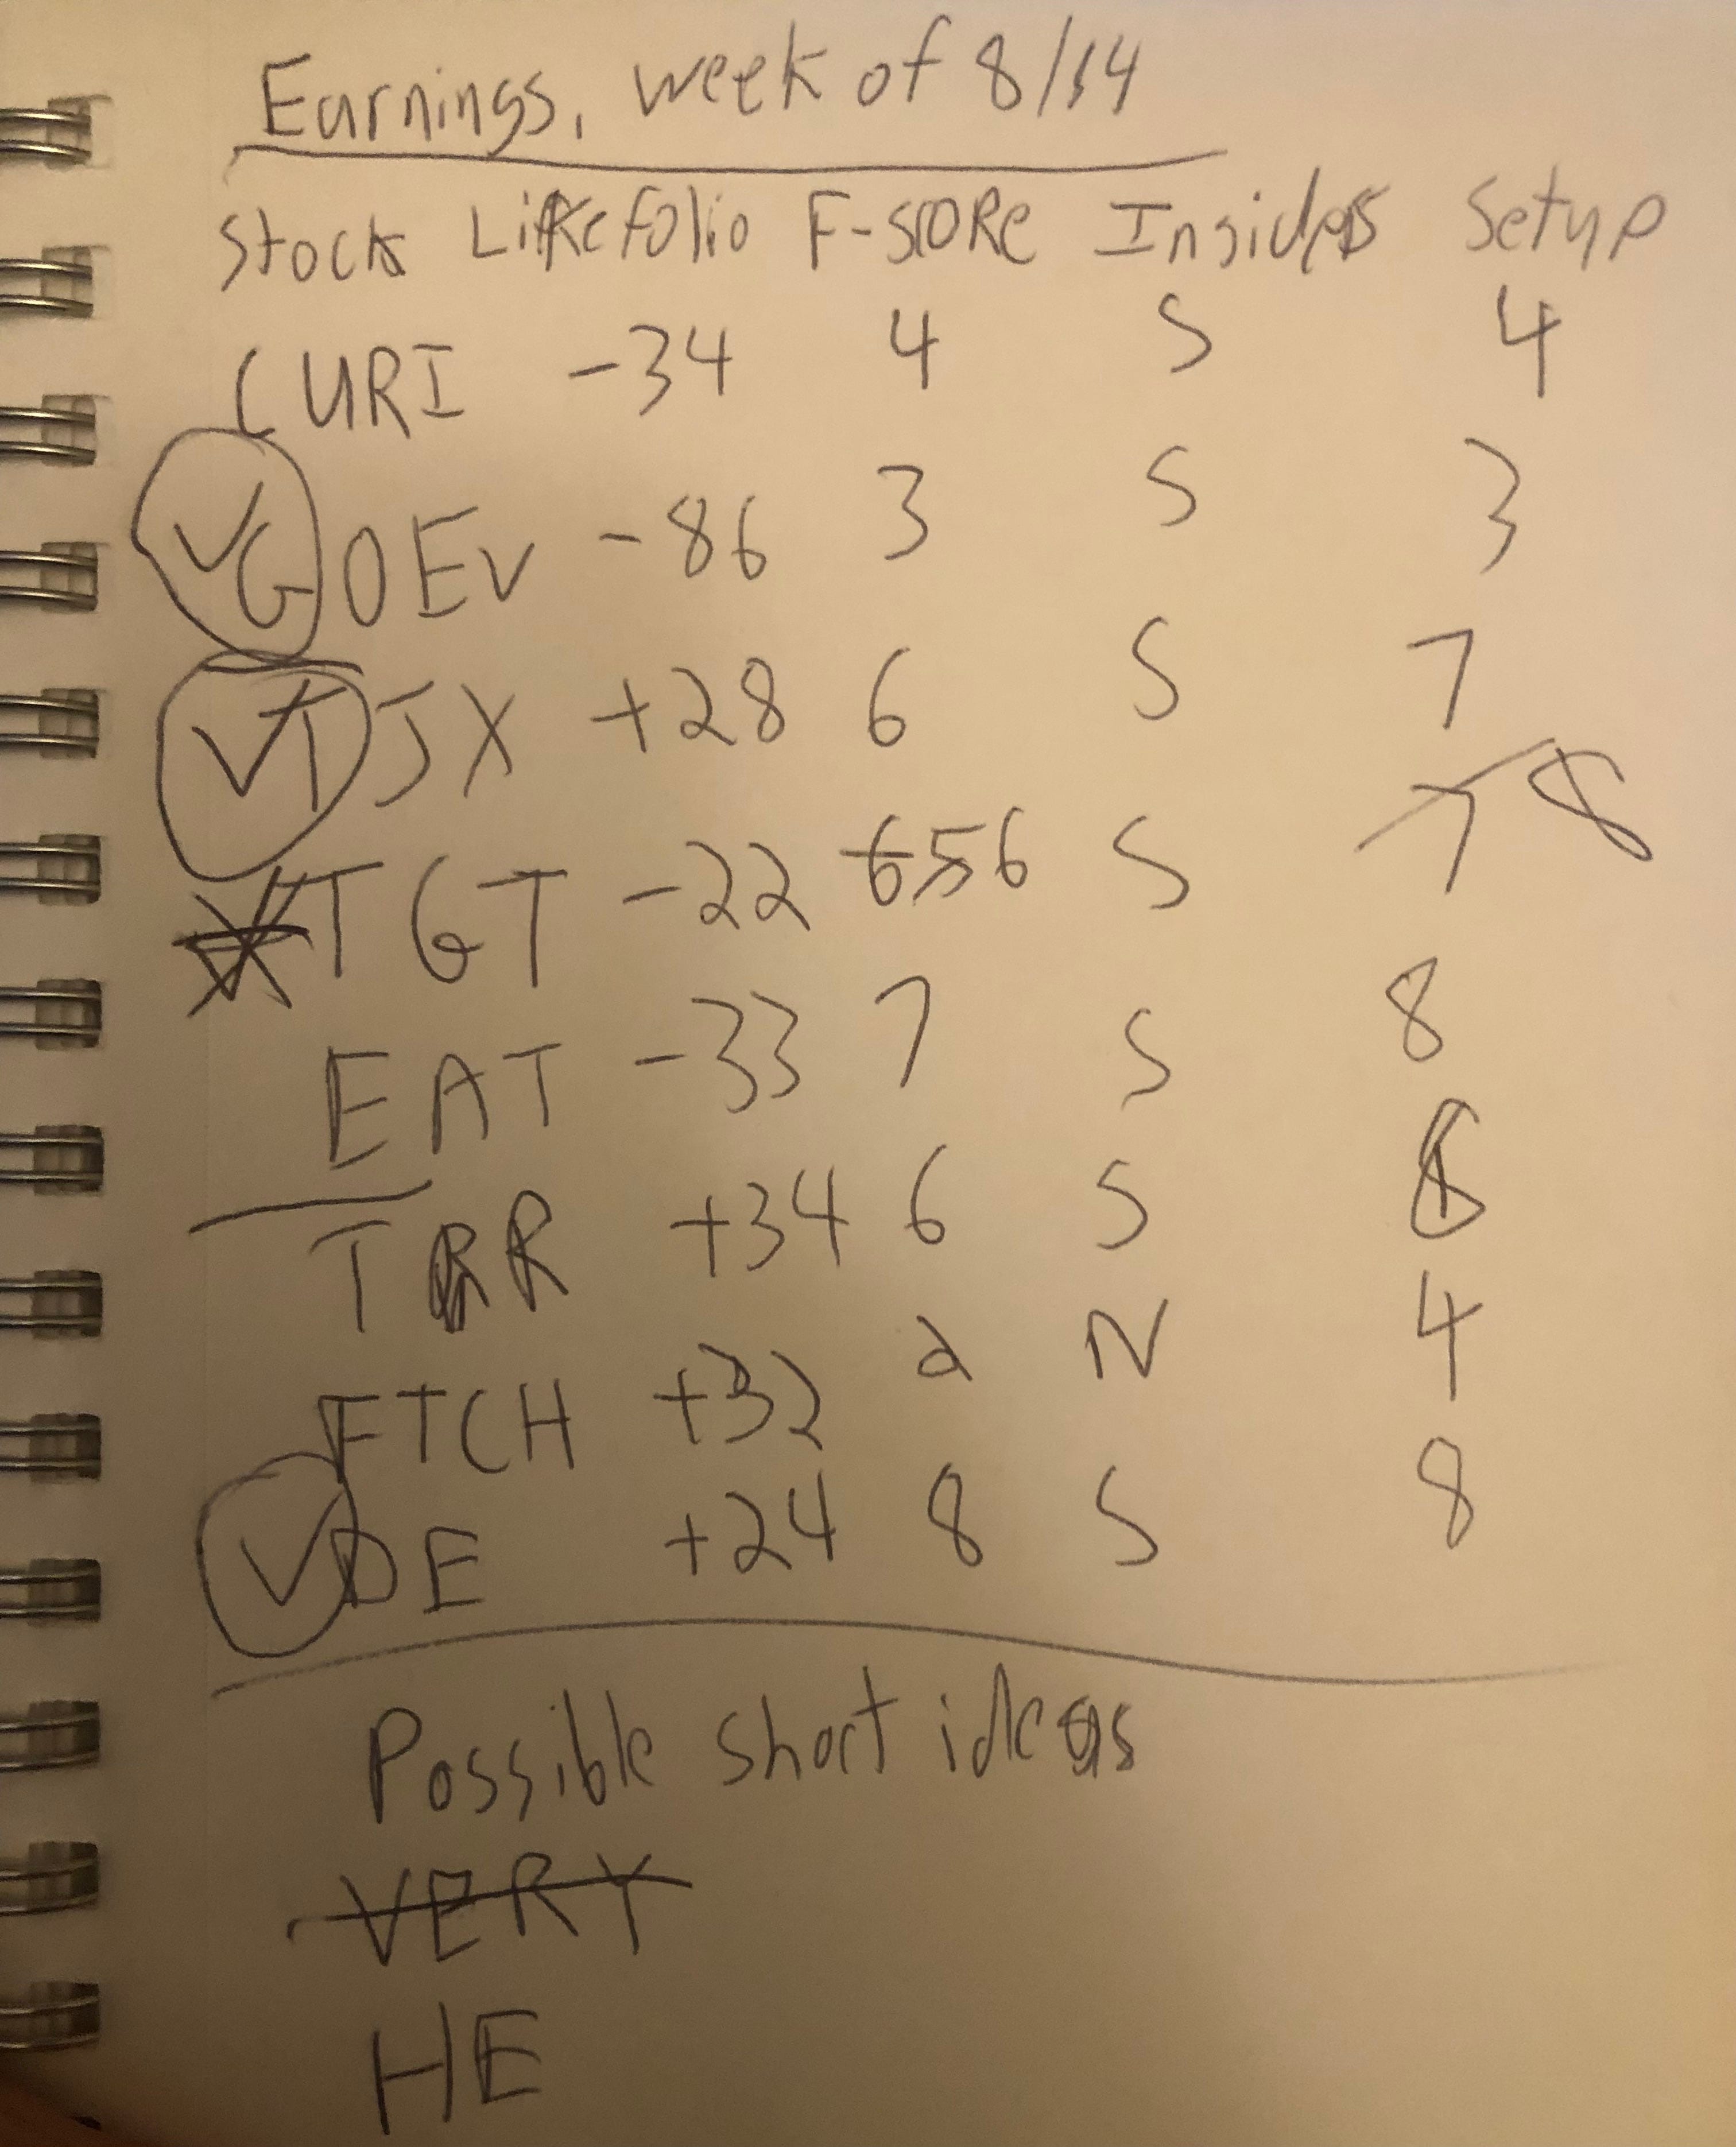 Earnings, week of 8/14
Stock Likefolio F-score Insiders Setup
CURI -34 4 S 4
GOEV -86 3 S 3
TJX +28 6 S 7
TGT -22 6 5 6 S 7 8
EAT -33 7 S 8
TPR +34 6 S
FTCH +32 2 N 4
DE +24 8 S 8
Possible short ideas
VERY
HE